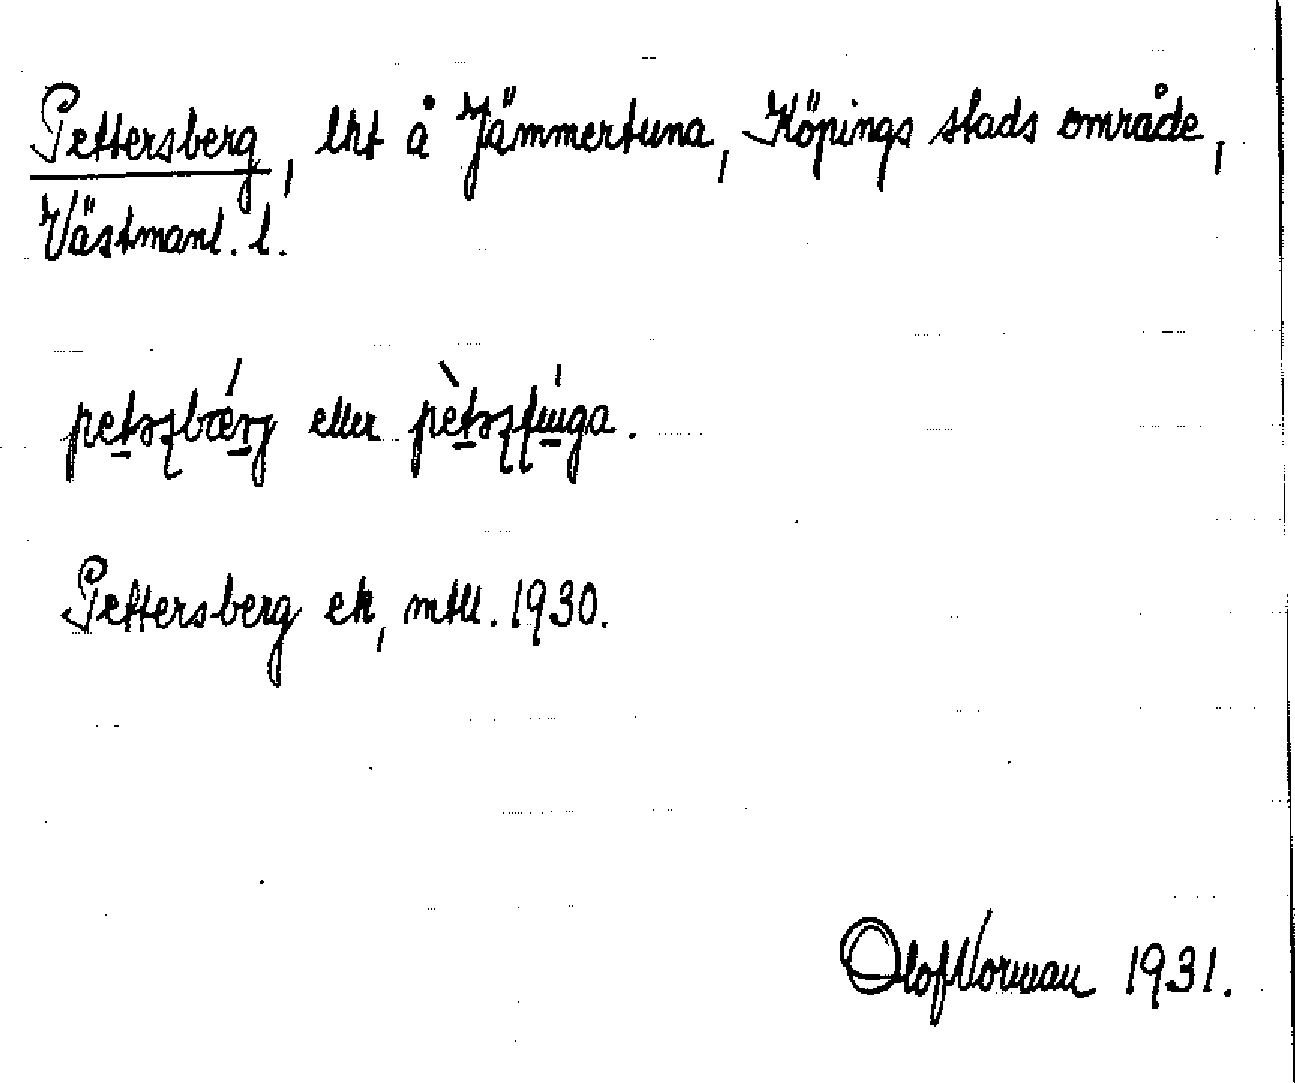 Pettersberg, lht å Jämmertuna, Köpings stads område,
Västmanl. l.
eller
Pettersberg ek, mtll. 1930.
Olof Norman 1931.